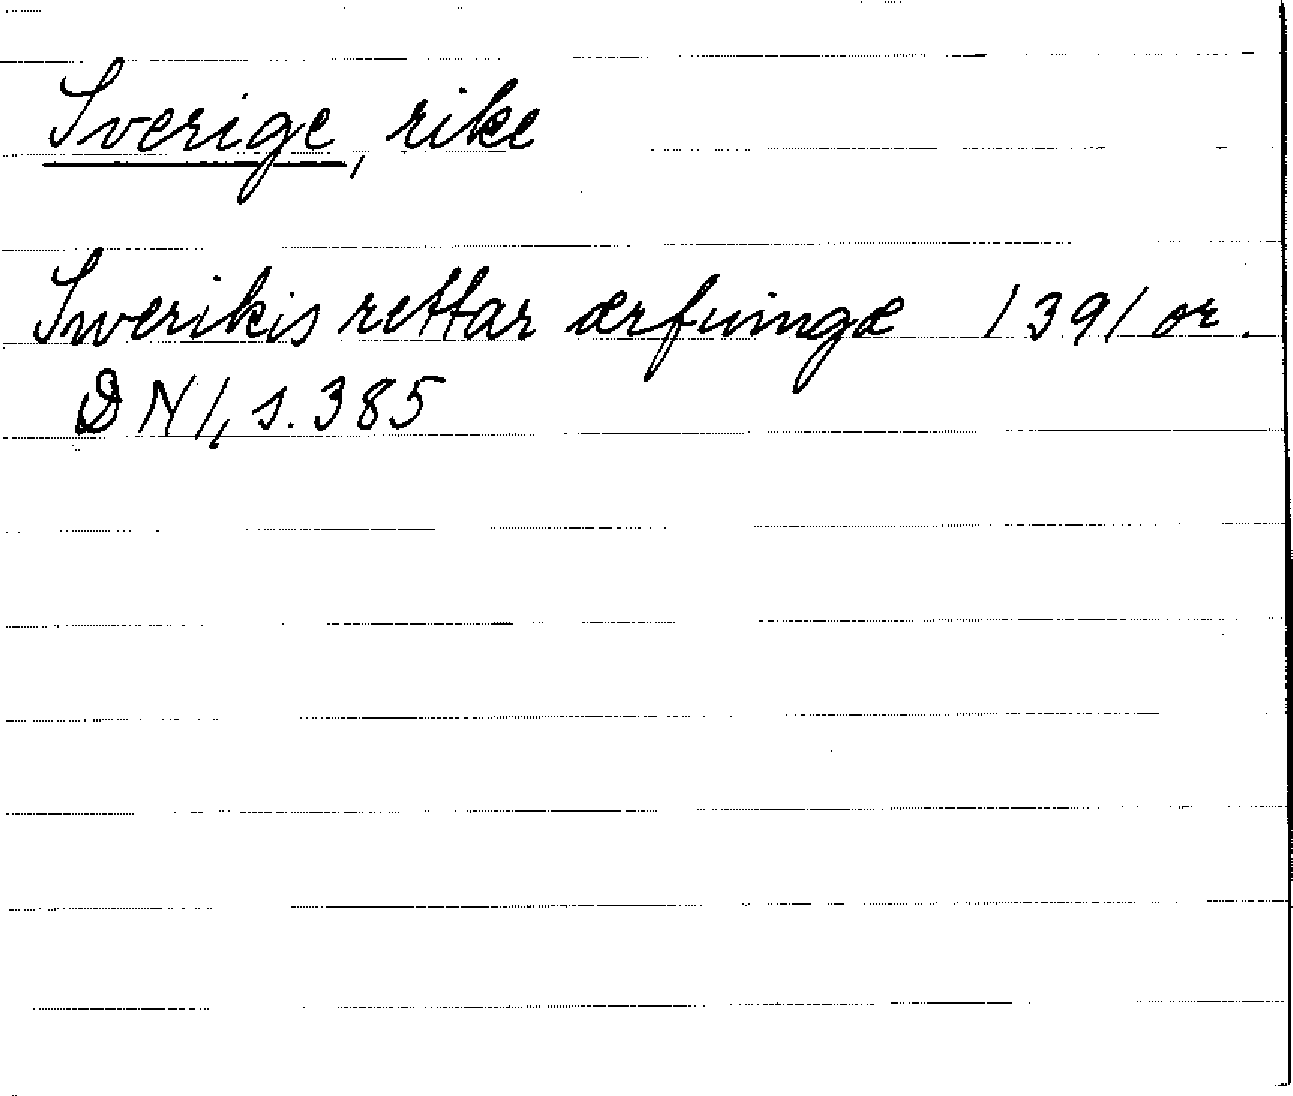 Sverige, rike
Swerikis rettar ærfuinga 1391 or.
DN 1, s. 385